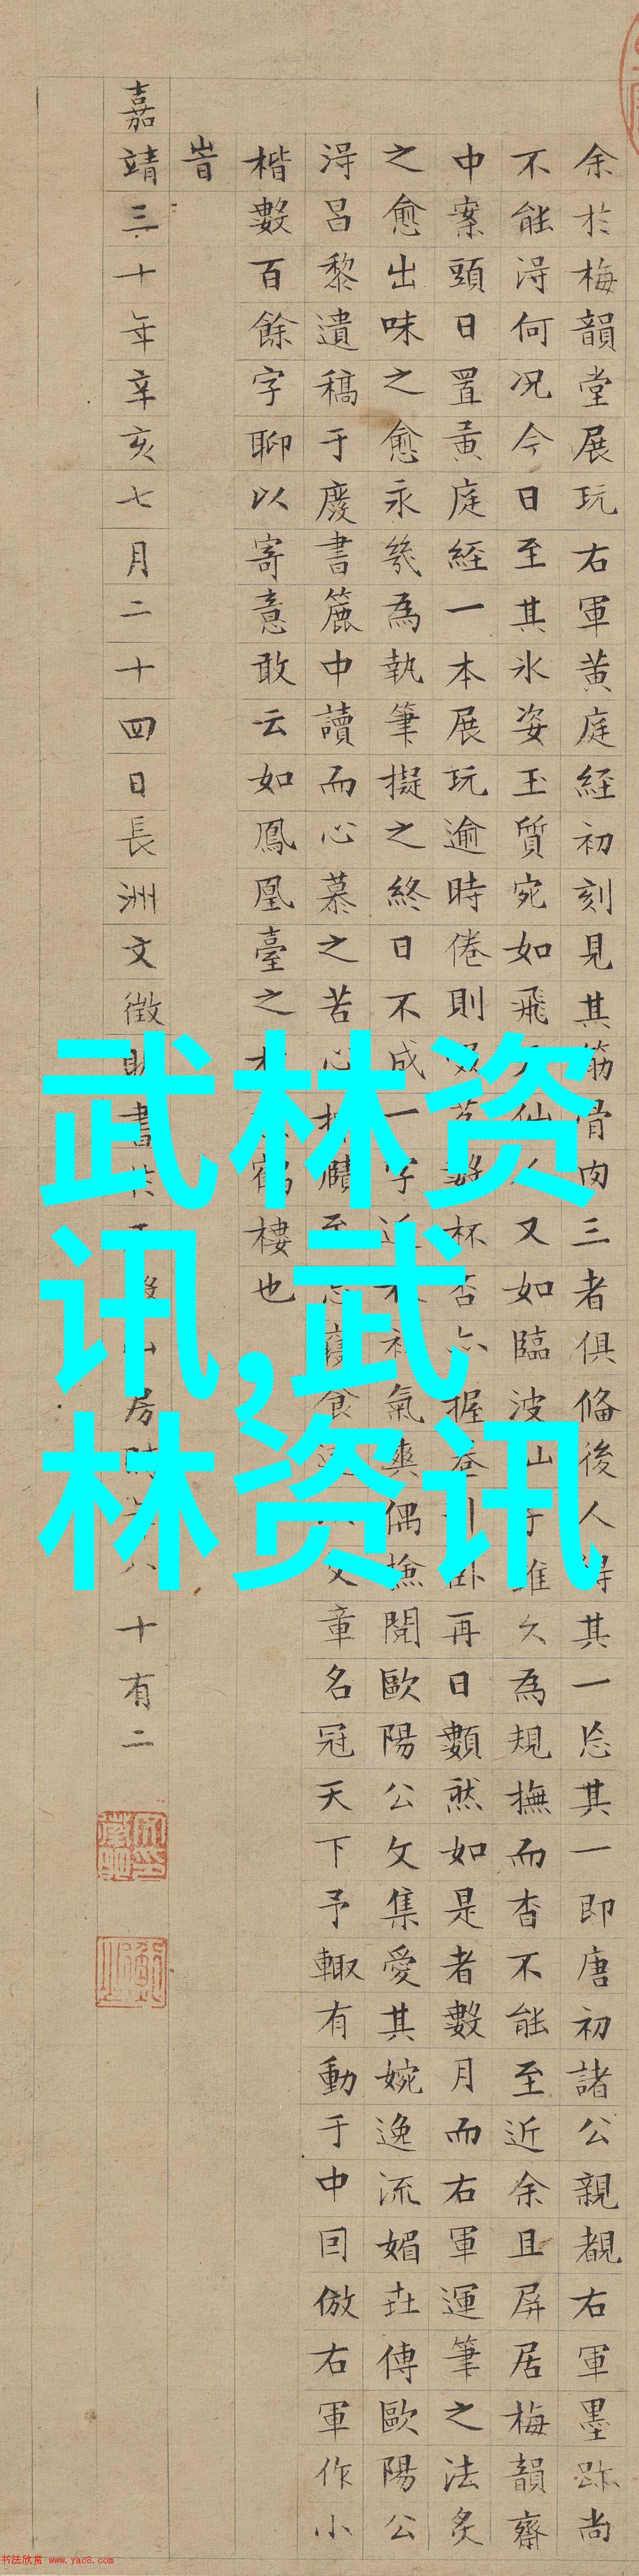 余於梅韻堂展玩右軍黄庭経初刻見其筋骨肉三者俱俻後人得其一忘其一即唐初諸公親覩右軍墨跡尚
不能淂何况今日至其氷姿玉質宛如飛仙又如臨波為規撫而杳不能至近余且屏居梅韻齋
中案頭日置黄庭経一本展玩逾時倦則杯握再日數然如是者數月而右軍運筆之法炙
之愈出味之愈永幾為執筆擬之終日不成一字近氣爽偶撿閱歐陽公文集愛其婉逸流媚傳歐陽公
淂吕黎遺稿于廢書簏中讀而心慕之苦心食文章名冠天下予輙有動于中因倣右軍作小
楷數百餘字聊以寄意敢云如鳳凰臺之鶴樓也
旹
嘉靖三十年辛亥七月二十四日長洲文徵明書房八十有二
武林资
讯,武
林资讯
书法欣赏 www.yac8.com